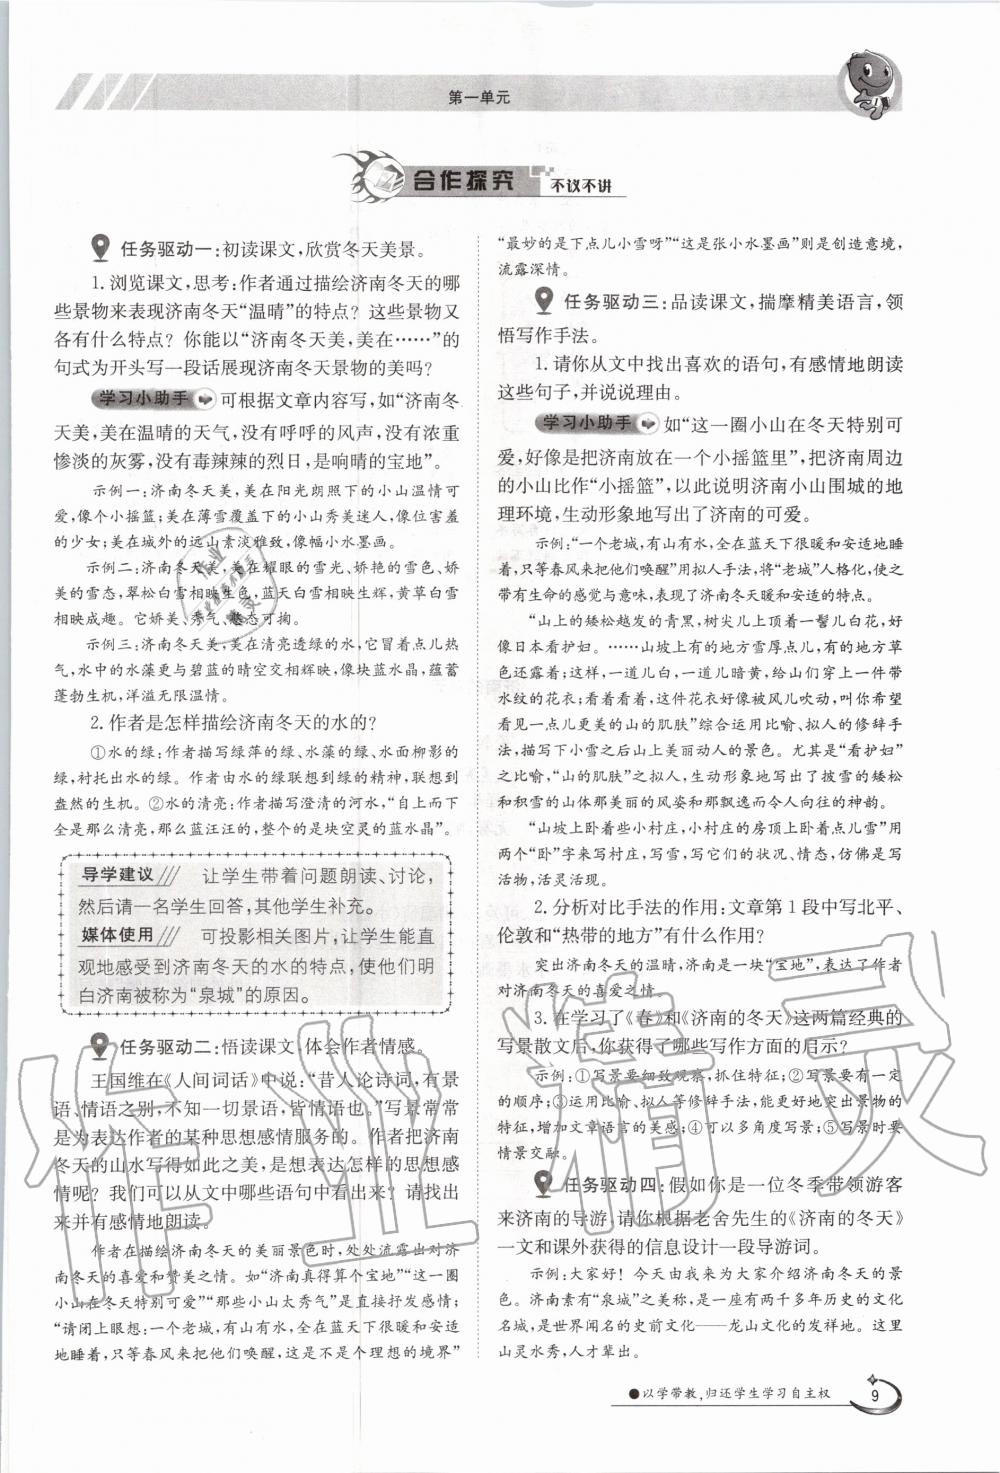 第一单元
合作探究 不议不讲
任务驱动一:初读课文,欣赏冬天美景。
1. 浏览课文,思考:作者通过描绘济南冬天的哪
些景物来表现济南冬天“温晴”的特点？这些景物又
各有什么特点？你能以“济南冬天美,美在……”的
句式为开头写一段话展现济南冬天景物的美吗?
学习小助手 可根据文章内容写,如“济南冬
天美,美在温晴的天气,没有呼呼的风声,没有浓重
惨淡的灰雾,没有毒辣辣的烈日,是响晴的宝地”。
示例一:济南冬天美,美在阳光朗照下的小山温情可
爱,像个小摇篮;美在薄雪覆盖下的小山秀美迷人,像位害羞
的少女;美在城外的远山素淡雅致,像幅小水墨画。
示例二:济南冬天美,美在耀眼的雪光、娇艳的雪色、娇
美的雪态,翠松白雪相映生色,蓝天白雪相映生辉,黄草白雪
相映成趣。它娇美、秀气、憨态可掬。
示例三:济南冬天美,美在清亮透绿的水,它冒着点儿热
气,水中的水藻更与碧蓝的晴空交相辉映,像块蓝水晶,蕴蓄
蓬勃生机,洋溢无限温情。
2. 作者是怎样描绘济南冬天的水的?
①水的绿:作者描写绿萍的绿、水藻的绿、水面柳影的
绿,衬托出水的绿。作者由水的绿联想到绿的精神,联想到
盎然的生机。②水的清亮:作者描写澄清的河水,“自上而下
全是那么清亮,那么蓝汪汪的,整个的是块空灵的蓝水晶”。
导学建议 让学生带着问题朗读、讨论,
然后请一名学生回答,其他学生补充。
媒体使用 可投影相关图片,让学生能直
观地感受到济南冬天的水的特点,使他们明
白济南被称为“泉城”的原因。
任务驱动二:悟读课文,体会作者情感。
王国维在《人间词话》中说:“昔人论诗词,有景
语、情语之别,不知一切景语,皆情语也。”写景常常
是为表达作者的某种思想感情服务的。作者把济南
冬天的山水写得如此之美,是想表达怎样的思想感
情呢？我们可以从文中哪些语句中看出来？请找出
来并有感情地朗读。
作者在描绘济南冬天的美丽景色时,处处流露出对济
南冬天的喜爱和赞美之情。如“济南真得算个宝地”“这一圈
小山在冬天特别可爱”“那些小山太秀气”是直接抒发感情;
“请闭上眼想:一个老城,有山有水,全在蓝天下很暖和安适
地睡着,只等春风来把他们唤醒,这是不是个理想的境界”
“最妙的是下点儿小雪呀”“这是张小水墨画”则是创造意境,
流露深情。
任务驱动三:品读课文,揣摩精美语言,领
悟写作手法。
1. 请你从文中找出喜欢的语句,有感情地朗读
这些句子,并说说理由。
学习小助手 如“这一圈小山在冬天特别可
爱,好像是把济南放在一个小摇篮里”,把济南周边
的小山比作“小摇篮”,以此说明济南小山围城的地
理环境,生动形象地写出了济南的可爱。
示例:“一个老城,有山有水,全在蓝天下很暖和安适地睡
着,只等春风来把他们唤醒”用拟人手法,将“老城”人格化,使之
带有生命的感觉与意味,表现了济南冬天暖和安适的特点。
“山上的矮松越发的青黑,树尖儿上顶着一髻儿白花,
好像日本看护妇。……山坡上有的地方雪厚点儿,有的地方草
色还露着;这样,一道儿白,一道儿暗黄,给山们穿上一件带
水纹的花衣;看着看着,这件花衣好像被风儿吹动,叫你希望
看见一点儿更美的山的肌肤”综合运用比喻、拟人的修辞手
法,描写下小雪之后山上美丽动人的景色。尤其是“看护妇”
之比喻,“山的肌肤”之拟人,生动形象地写出了披雪的矮松
和积雪的山体那美丽的风姿和那飘逸的神韵。
“山坡上卧着些小村庄,小村庄的房顶上卧着点儿雪”用
两个“卧”字来写村庄,写雪,写它们的状况、情态,仿佛是写
活物,活灵活现。
2. 分析对比手法的作用:文章第1段中写北平、
伦敦和“热带的地方”有什么作用?
突出济南冬天的温晴,济南是一块“宝地”,表达了作者
对济南冬天的喜爱之情。
3. 在学习了《春》和《济南的冬天》这两篇经典的
写景散文后,你获得了哪些写作方面的启示?
示例:①写景要细致观察,抓住特征;②写景要有一定
的顺序;③运用比喻、拟人等修辞手法,能更好地突出景物的
特征,增加文章语言的美感;④可以多角度写景;⑤写景时要
情景交融。
任务驱动四:假如你是一位冬季带领游客
来济南的导游,请你根据老舍先生的《济南的冬天》
一文和课外获得的信息设计一段导游词。
示例:大家好！今天由我来为大家介绍济南冬天的景
色。济南素有“泉城”之美称,是一座有两千多年历史的文化
名城,是世界闻名的史前文化——龙山文化的发祥地。这里
山灵水秀,人才辈出。
●以学带教,归还学生学习自主权
9
作业精灵